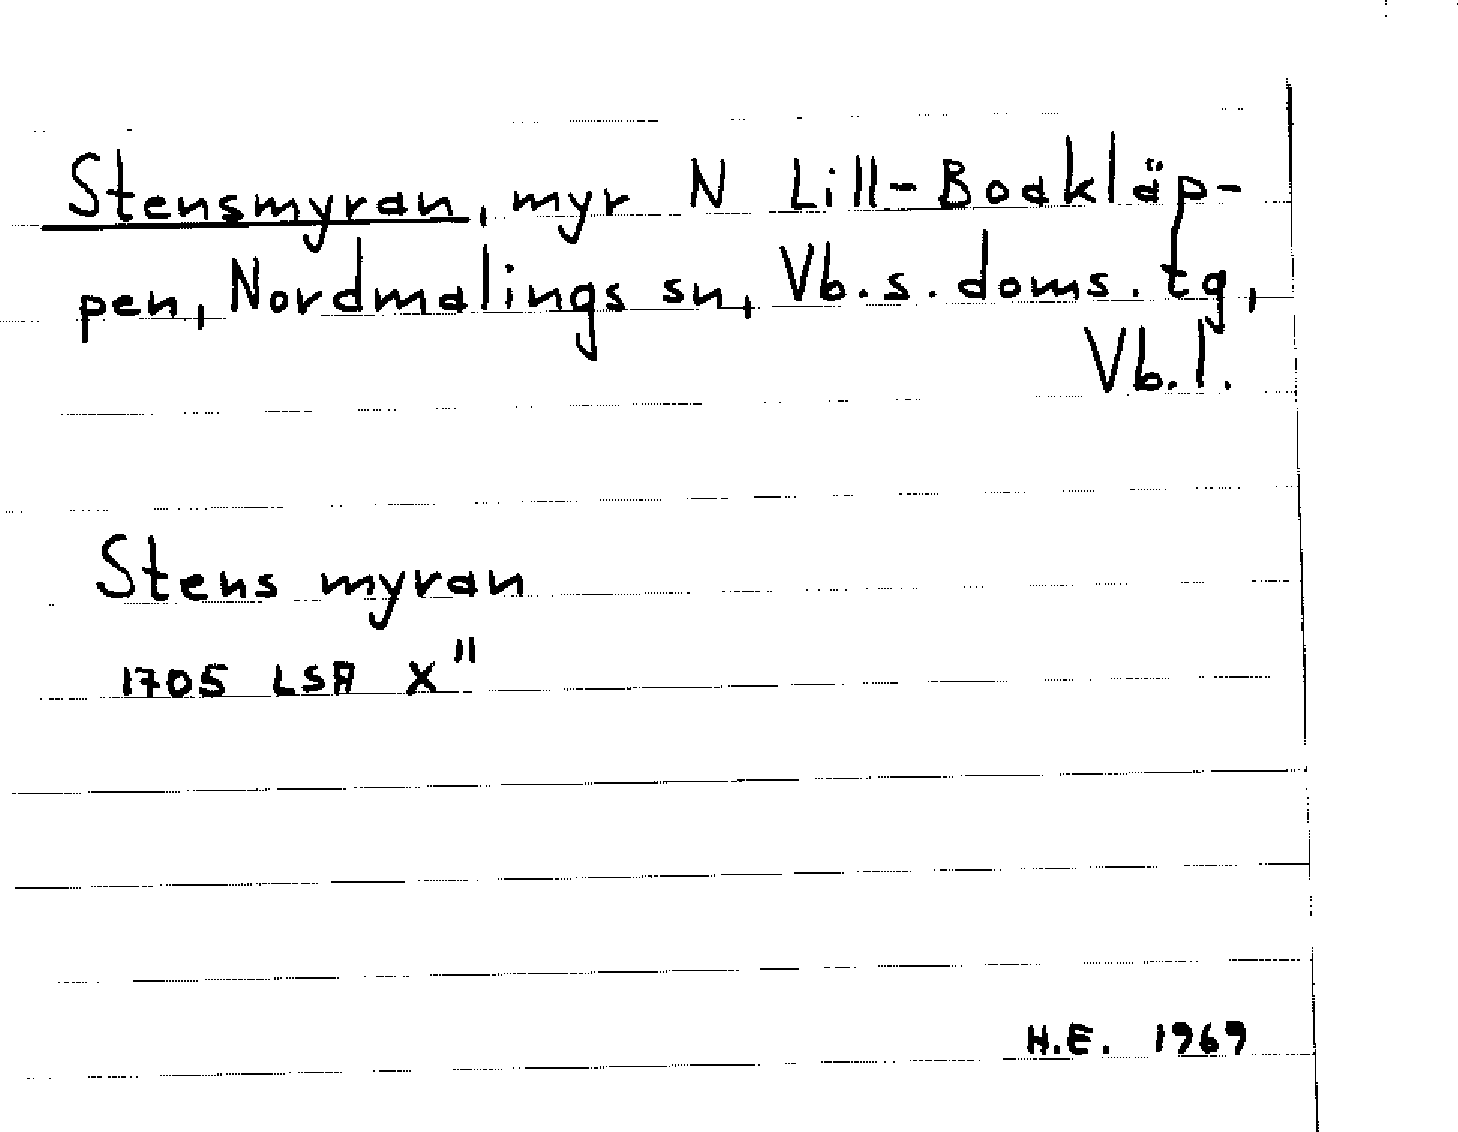 Stensmyran, myr N Lill-Bodkläp-
pen, Nordmalings sn, Vb.s.doms.tg,
Vb.l.
Stens myran
1705 LSA X"
H.E. 1969